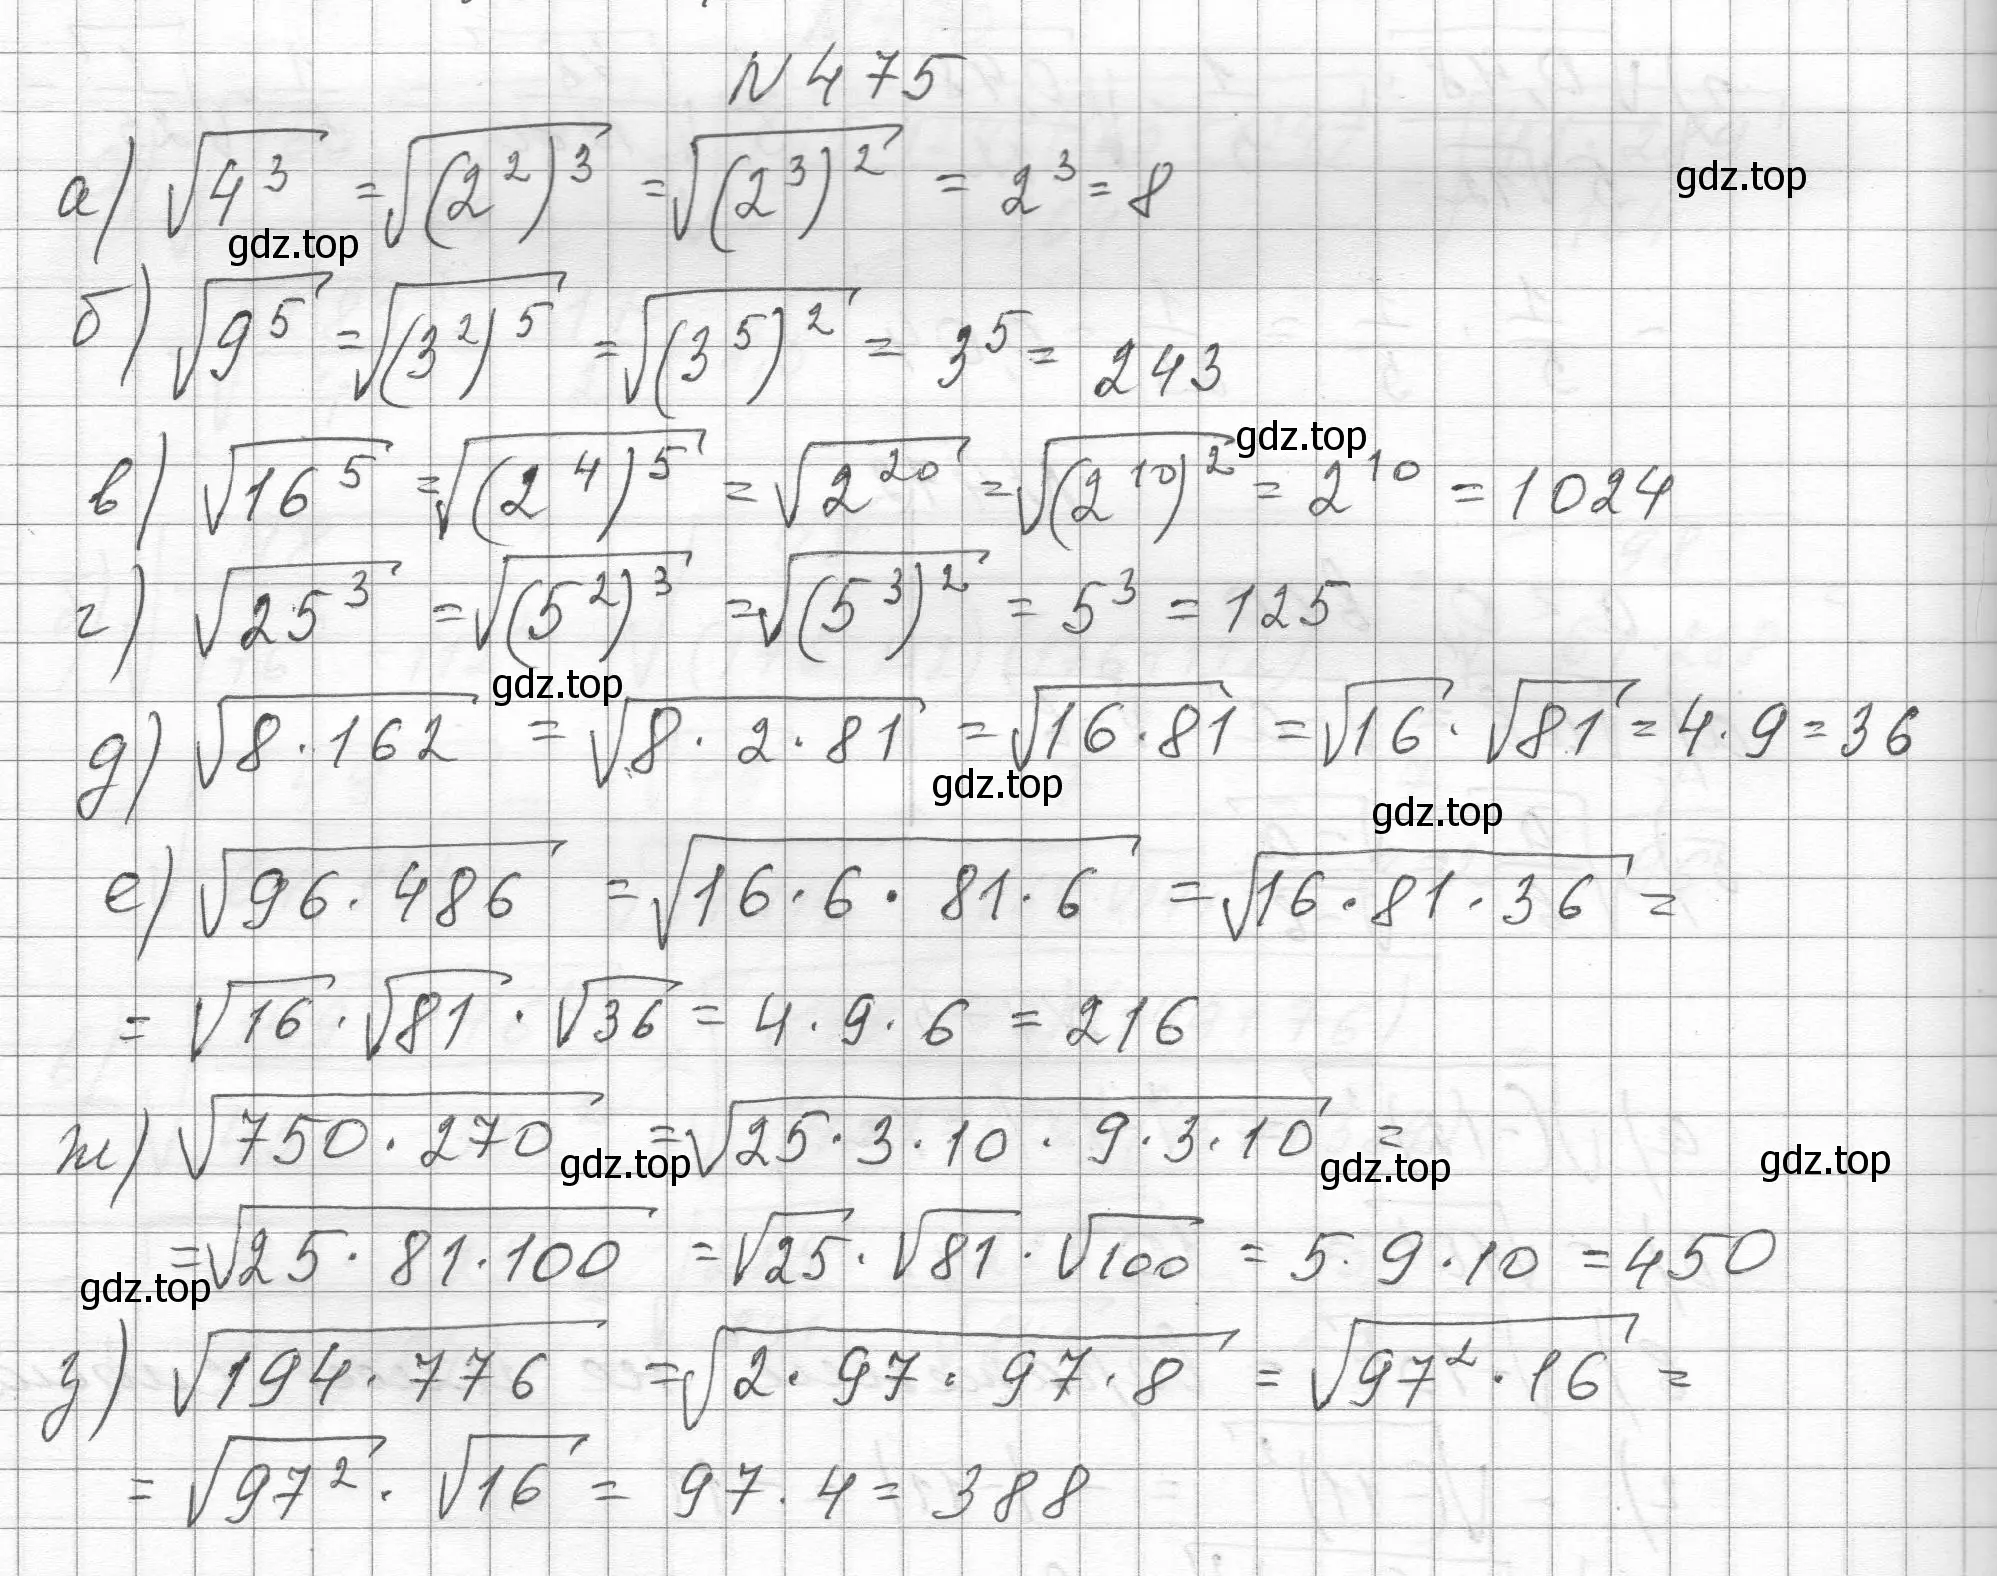 N 475
а) √4³ = √(2²)³ = √(2³)² = 2³ = 8
gdz.top
gdz.top
б) √9⁵ = √(3²)⁵ = √(3⁵)² = 3⁵ = 243
gdz.top
в) √16⁵ = √(2⁴)⁵ = √2²⁰ = √(2¹⁰)² = 2¹⁰ = 1024
г) √25³ = √(5²)³ = √(5³)² = 5³ = 125
gdz.top
д) √8·162 = √8·2·81 = √16·81 = √16·√81 = 4·9 = 36
gdz.top
gdz.top
е) √96·486 = √16·6·81·6 = √16·81·36 =
= √16·√81·√36 = 4·9·6 = 216
ж) √750·270 = √25·3·10·9·3·10 =
gdz.top
gdz.top
gdz.top
= √25·81·100 = √25·√81·√100 = 5·9·10 = 450
gdz.top
з) √194·776 = √2·97·97·8 = √97²·16 =
= √97²·√16 = 97·4 = 388